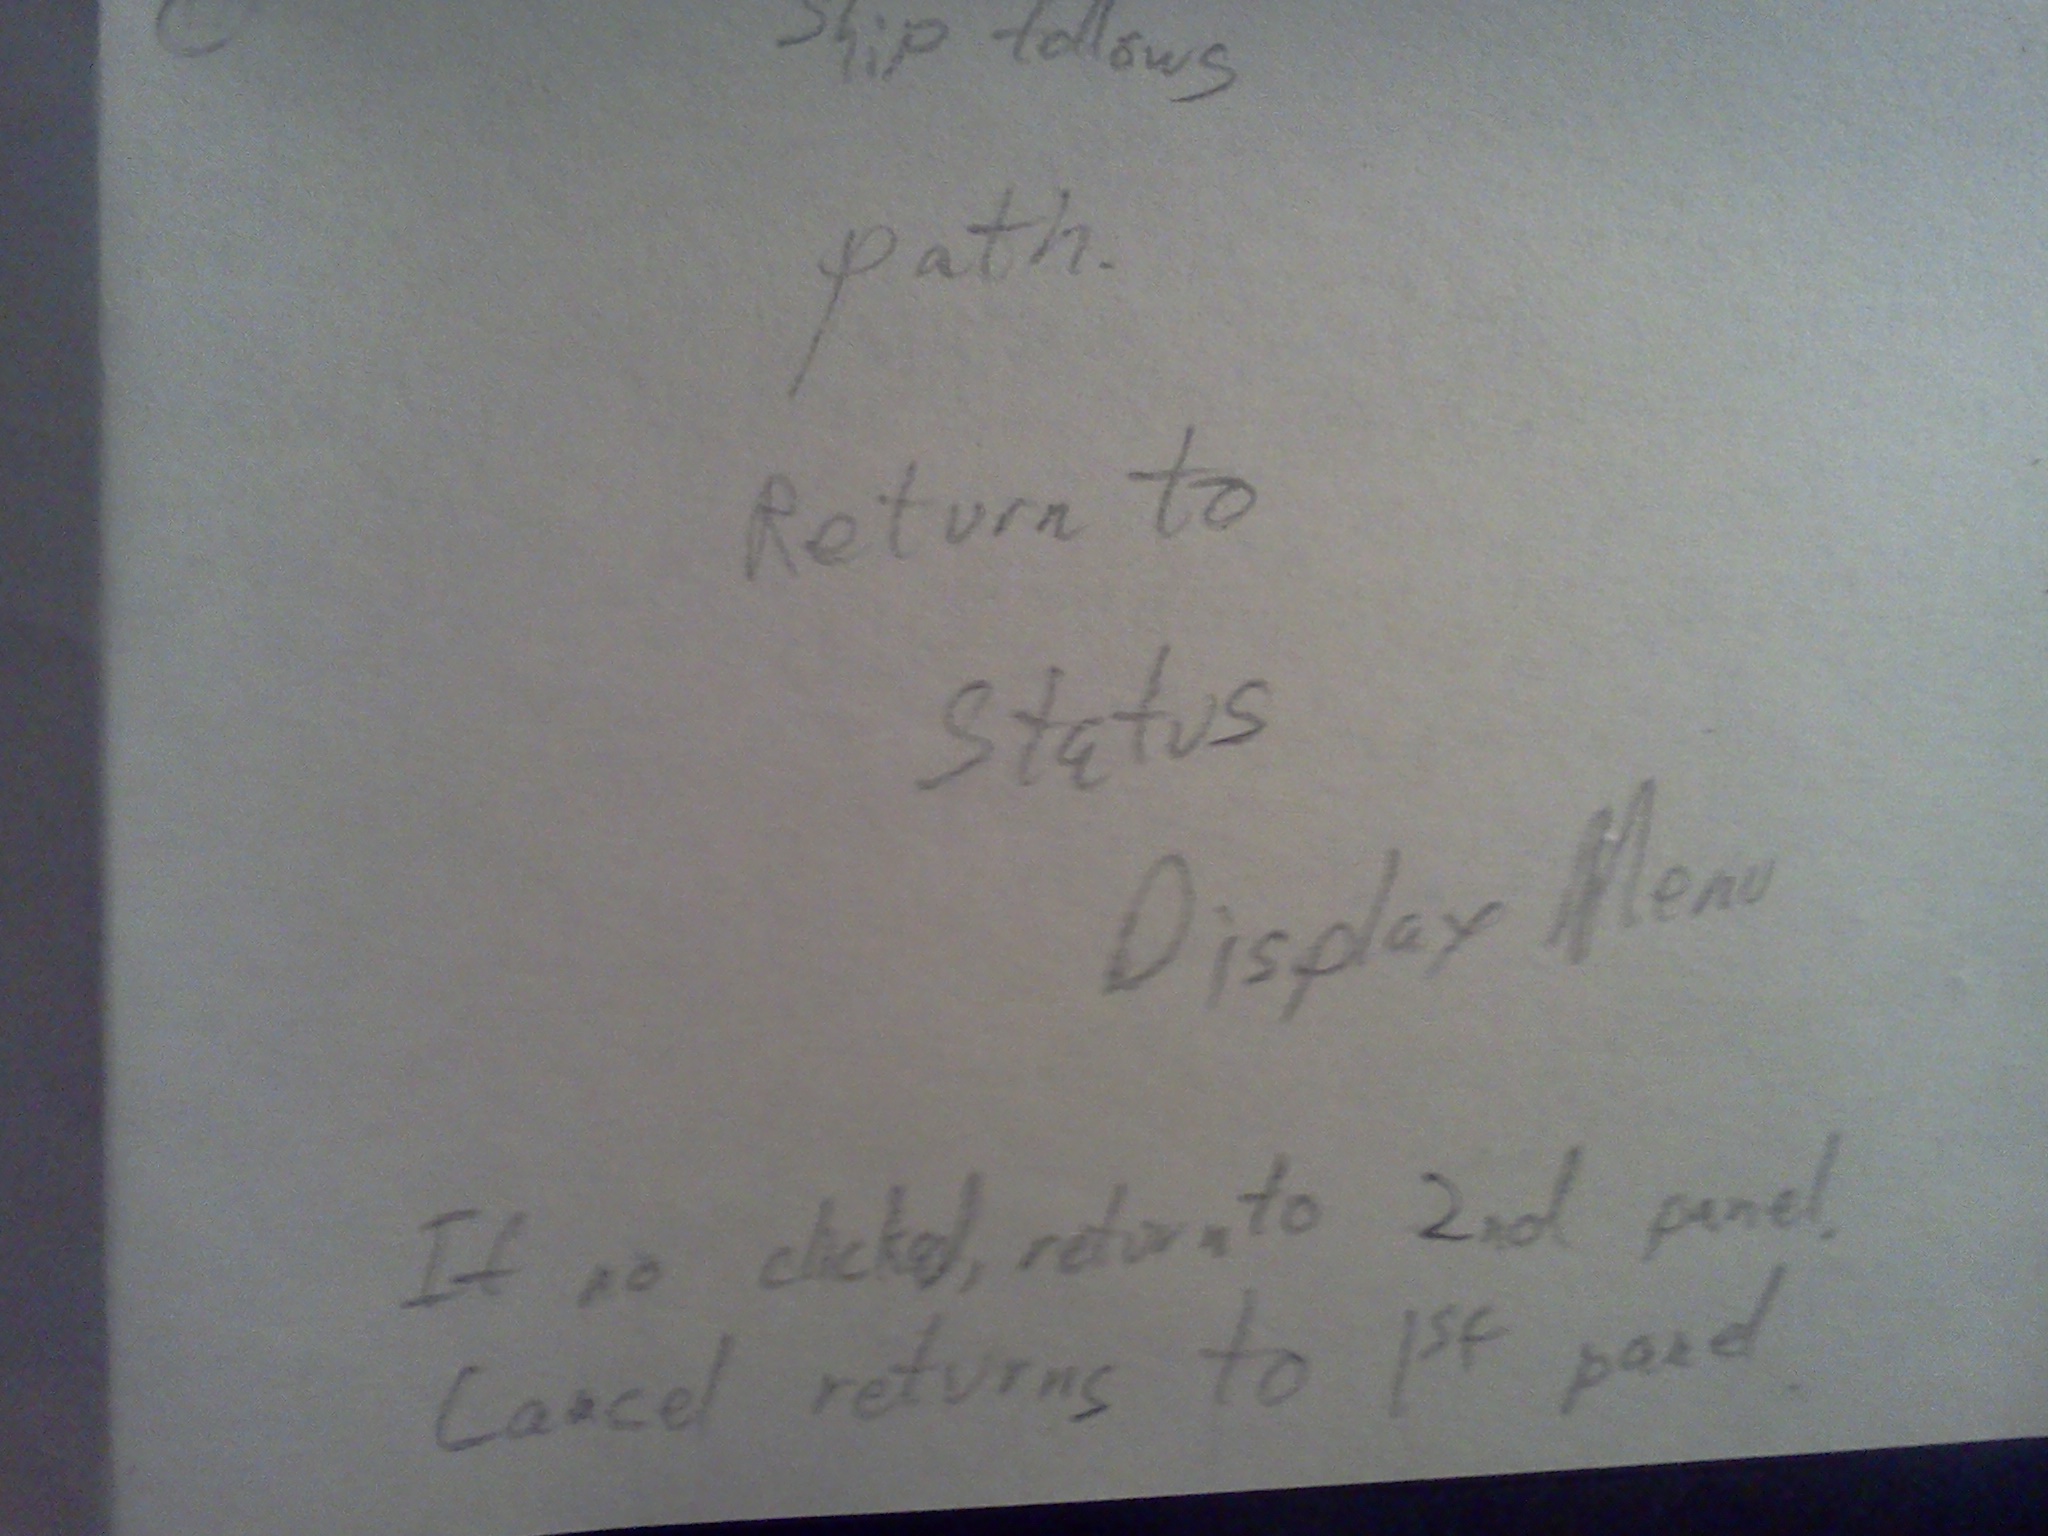 Ship follows
path.
Return to
Status
Display Menu
If no clicked, return to 2nd panel.
Cancel returns to 1st panel.